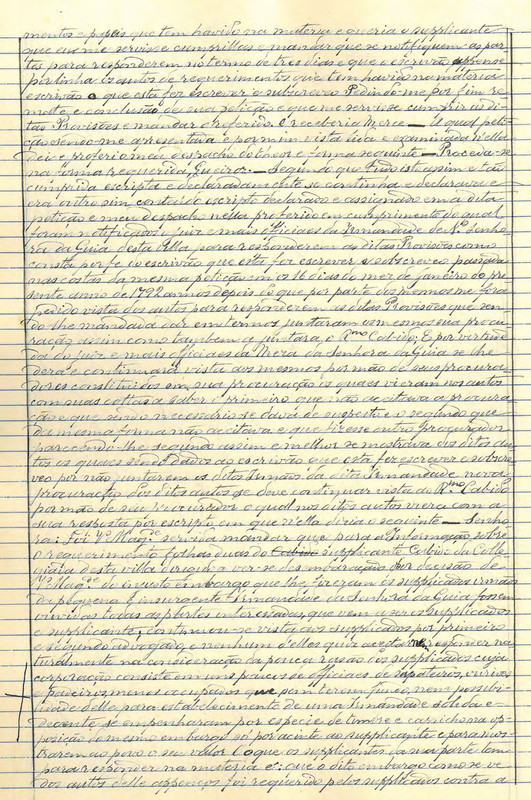 mentos e papeis que tem havido na materia e queria o supplicante
que eu me servisse cumprillas e mandar que se notifiquem as par-
tes para responderem no termo de tres dias e que o escrivão appense
por linha os autos de requerimentos que tem havido na materia
escrivão o que esta fez escrever o subscrevo Pedindo me por fim re-
mate e conclusão da sua petição e que me servisse cumprir as di-
tas Provisões e mandar o referido. E receberia Merce — A qual peti-
ção sendo-me apresentada e por mim vista lida e examinada nella
dei e proferi o meu despacho do theor e forma seguinte — Proceda-se
na forma requerida, Queiroz — Segundo que tudo isto assim e tão
cumprida escripta e declaradamente se continha e declarava e
era outro sim contado escripto declarado e assignado em a dita
petição e meu despacho nella proferido em cumprimento do qual
foram notificados o juiz e mais officiaes da Irmandade de N. Senho-
ra da Guia desta Villa para responderem as ditas Provisões como
consta por fé do escrivão que esta fez escrever e subscreveo passada
nas costas da mesma petição em os 16 dias do mez de Janeiro do pre-
sente anno de 1792 annos depois do que por parte dos mesmos me fora
pedido vista dos autos para responderem as ditas Provisões que sen-
do lhe mandada dar em termos juntaram com esmos sua procu-
ração assim como tambem a juntara, o Rmo Cabido, E por virtu-
de do juiz e mais officiaes da Meza da Senhora da Guia se lhe
dera e continuara vista aos mesmos por mão de seus procura-
dores constituidos em sua procuração os quaes vieram nos autos
com suas cottas a saber o primeiro que não acitava a procura-
ção e que sendo necessario se dava de suspeito e o segundo que
da mesma forma não acitava e que fizesse outro Procurador
parecendo-lhe segundo assim e melhor se mostrava dos ditos au-
tos os quaes sendo dados ao escrivão que esta fez escrever e subscre-
veo por não juntarem os ditos Irmãos da dita Irmandade nova
procuração dos ditos autos se deve continuar vista ao Rmo Cabido
por mão de seu Procurador o qual nos ditos autos viera com a
sua resposta por escripto em que nella dizia o seguinte — Senho-
ra: Foi V. Mage servida mandar que para a Informação sobre
o requerimento folhas duas do supplicante Cabido da Colle-
giata desta villa dirigida a ver-se desembaraçado por decisão de
V. Magde do injusto embargo que lhe fizeram os supplicados irmãos
da pequena e insurgente Irmandade da Senhora da Guia fossem
ouvidas todas as partes interessadas, que vem a ser os supplicados
e supplicante; continuou-se vista aos supplicados por primeiro
e segundo advogado, e nenhum d'elles quiz acceitar ne responder na-
turalmente na consideração da pouca rasão dos supplicados cuja
corporação consiste em uns poucos de officiaes de sapateiros, ourives
e padeiros, menos occupados que, sem terem fundo, nem possibi-
lidade delle, para estabelecimento de uma Irmandade solida e
decente se empenharam por especie de timbre e carricho na op-
posição do mesmo embargo só por acinte ao supplicante e para mos-
trarem ao povo o seu valor. O que os supplicantes da sua parte tem
para responder na materia é: que o dito embargo como se vê
dos autos delle appenços foi requerido pelos supplicados contra a